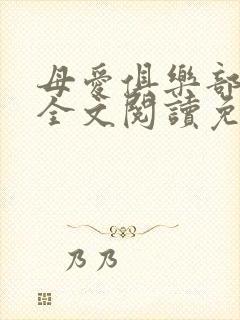 母愛俱樂部
全文閱讀免
乃乃